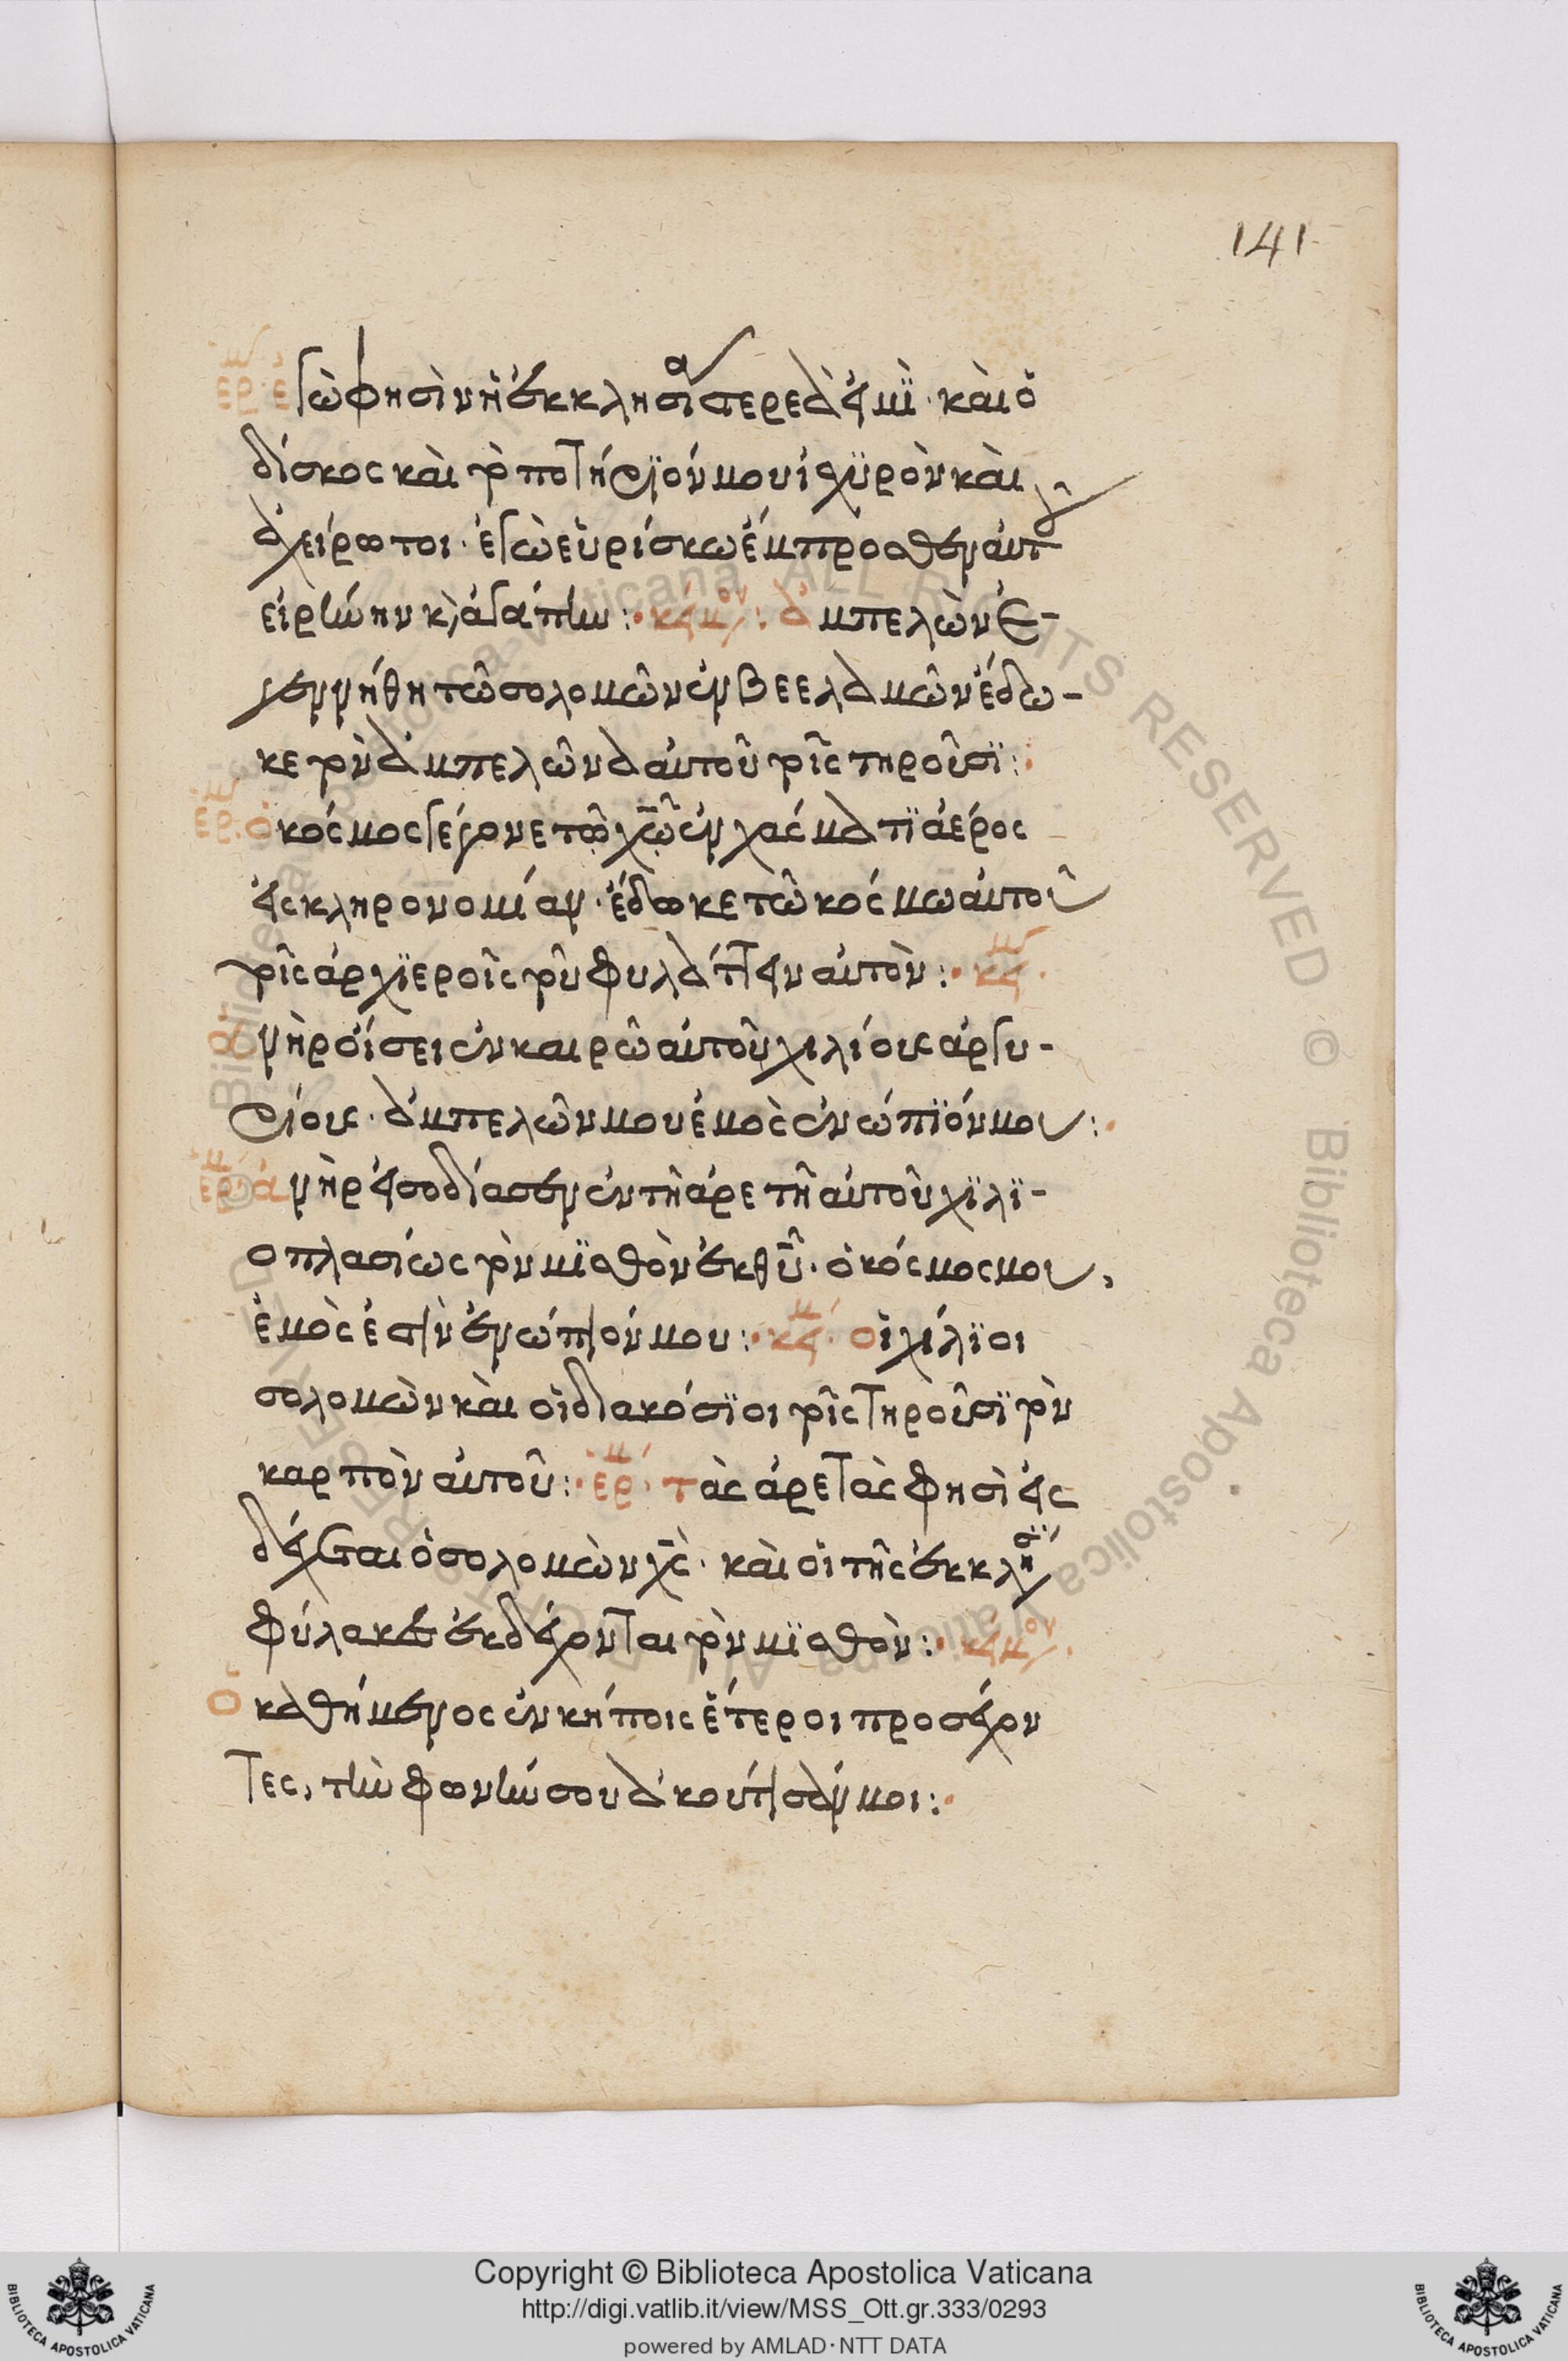 141
ἑρμ ἐγὼ φησὶν ἡ ἐκκλησία στερεὰ εἰμὶ· καὶ ὁ
δίσκος καὶ τὸ ποτήριόν μου ἰσχυρὸν καὶ
ἀχείρωτοι· ἐγὼ εὑρίσκω ἔμπροσθεν αὐτ
εἰρήνην κ ἀγάπην: κείμ: ἀμπελὼν ἐ-
γεννήθη τῶ σολομῶν ἐν Βεελαμῶν ἔδω-
κε τὸν ἀμπελῶνα αὐτοῦ τοῖς τηροῦσι:
ἑρμ ὁ κόσμος γέγονε τῶ χω ἐν χάσματι ἀέρος
εἰς κληρονομίαν· ἔδωκε τῶ κόσμω αὐτοῦ
τοῖς ἀρχιεροῖς τοῦ φυλάττειν αὐτὸν: κειμ
ἀνὴρ οἴσει ἐν καιρῶ αὐτοῦ χιλίους ἀργυ-
ρίους· ἀμπελῶν μου ἐμὸς ἐνώπιόν μου:
ἑρμ ἀνὴρ εἰσοδίασεν ἐν τῆ ἀρετῆ αὐτοῦ χιλι-
οπλασίως τὸν μισθὸν ἐκ θυ· ὁ κόσμος μου,
ἐμὸς ἐστὶν ἐνώπιόν μου: κειμ οἱ χίλιοι
σολομὼν καὶ οἱ διακόσιοι τοῖς τηροῦσι τὸν
καρπὸν αὐτοῦ: ἑρμ τὰς ἀρετὰς φησὶ εἰς
δέχεται ὁ σολομὼν χς· καὶ οἱ τῆς ἐκκλησι
φύλακες ἐκδέχονται τὸν μισθὸν: κείμον
ὁ καθήμενος ἐν κήποις ἕτεροι προσέχον
τες, τὴν φωνήν σου ἀκούτισάν μοι:
Copyright © Biblioteca Apostolica Vaticana
http://digi.vatlib.it/view/MSS_Ott.gr.333/0293
powered by AMLAD·NTT DATA
BIBLIOTECA APOSTOLICA VATICANA
BIBLIOTECA APOSTOLICA VATICANA